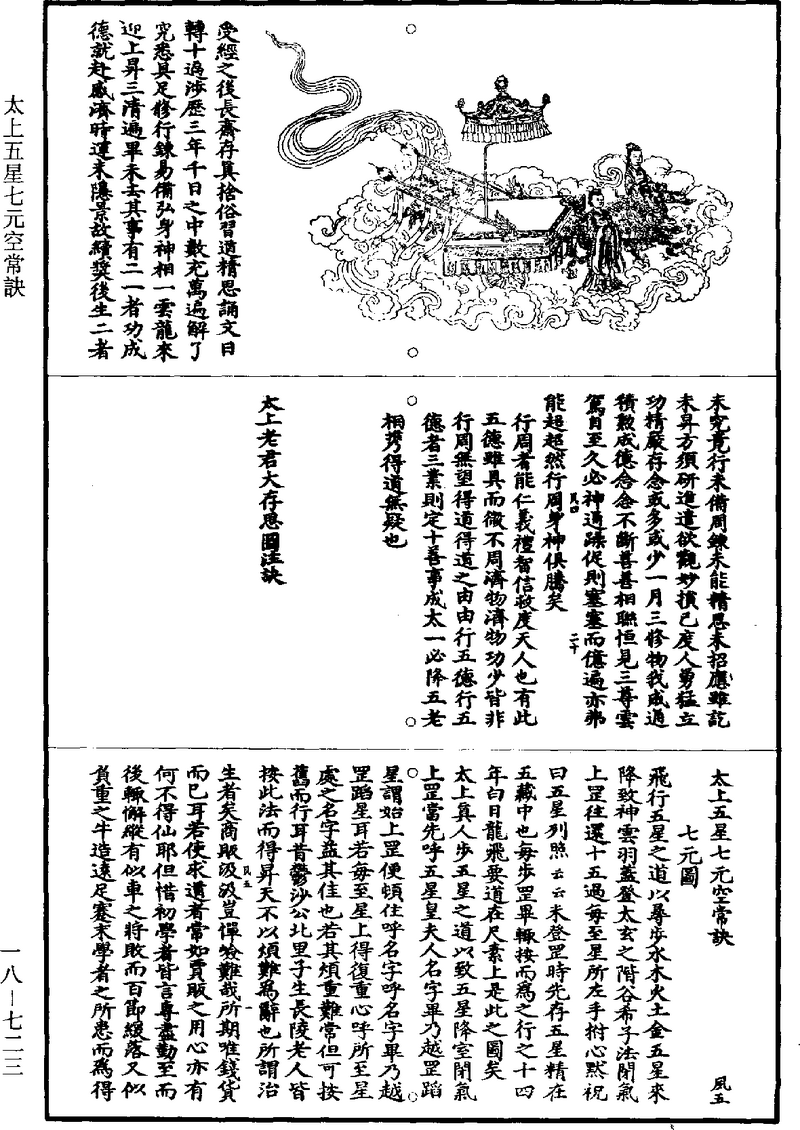 太上五星七元空常訣
一八—七二三
受經之後長齋存真捨俗習道精思誦文日
轉十遍涉歷三年千日之中數充萬遍解了
究悉具足修行鍊易備弘身神相一雲龍來
迎上昇三清遍畢未去其事有二一者功成
德就赴感濟時運未隱景故續獎後生二者
未究竟行未備周鍊未能精思未招應雖訖
未昇方須研進遣欲觀妙損己度人勇猛立
功精嚴存念或多或少一月三修物我咸通
積勲成德念念不斷善善相聯恒見三尊雲
駕自至久必神通躁促則蹇蹇而億遍亦弗
能超超然行周身神俱騰矣
行周者能仁義禮智信救度天人也有此
五德雖具而微不周濟物濟物功少皆非
行周無望得道得道之由由行五德行五
德者三業則定十善事成太一必降五老
相携得道無疑也
太上老君大存思圖注訣
太上五星七元空常訣
夙五
七元圖
飛行五星之道以尋步水木火土金五星來
降致神雲羽蓋登太玄之階谷希子法閉氣
上罡往還十五過每至星所左手拊心黙祝
曰五星列照云云未登罡時先存五星精在
五藏中也每步罡畢輙按而為之行之十四
年白日龍飛要道在尺素上是此之圖矣
太上真人步五星之道以致五星降室閉氣
上罡當先呼五星皇夫人名字畢乃越罡蹈
星謂始上罡便頓住呼名字呼名字畢乃越
罡蹈星耳若每至星上得復重心呼所至星
處之名字益其佳也若其煩重難常但可按
舊而行耳昔鬱沙公北里子生長陵老人皆
按此法而得昇天不以煩難為辭也所謂治
生者矣商販汲汲豈憚嶮難哉所期唯錢貨
而已耳若使求道者當如賈販之用心亦有
何不得仙耶但惜初學者皆言尋盡動至而
後輙懈縱有似車之將敗而百節緩落又似
負重之牛造遠足蹇末學者之所患而為得